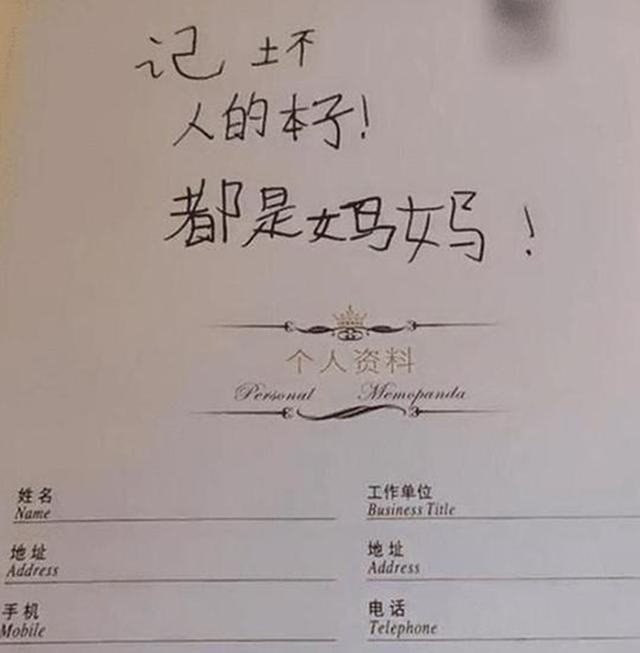 记 土不
人的本子!
都是妈妈!
个人资料
Personal Memopanda
姓名 工作单位
Name Business Title
地址 地址
Address Address
手机 电话
Mobile Telephone